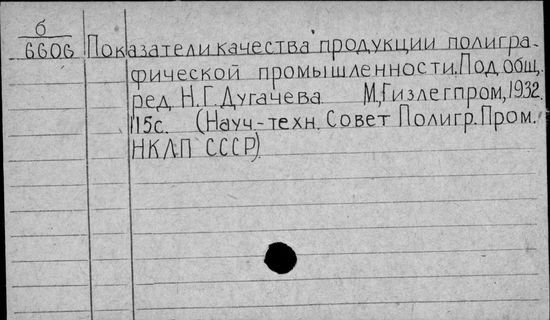 б
6606 Показатели качества продукции полигра-
фической промышленности. Под общ.
ред. Н.Г. Дугачева М, Гизлегпром, 1932.
115с. (Науч-техн. Совет Полигр. Пром.
НКЛП СССР)